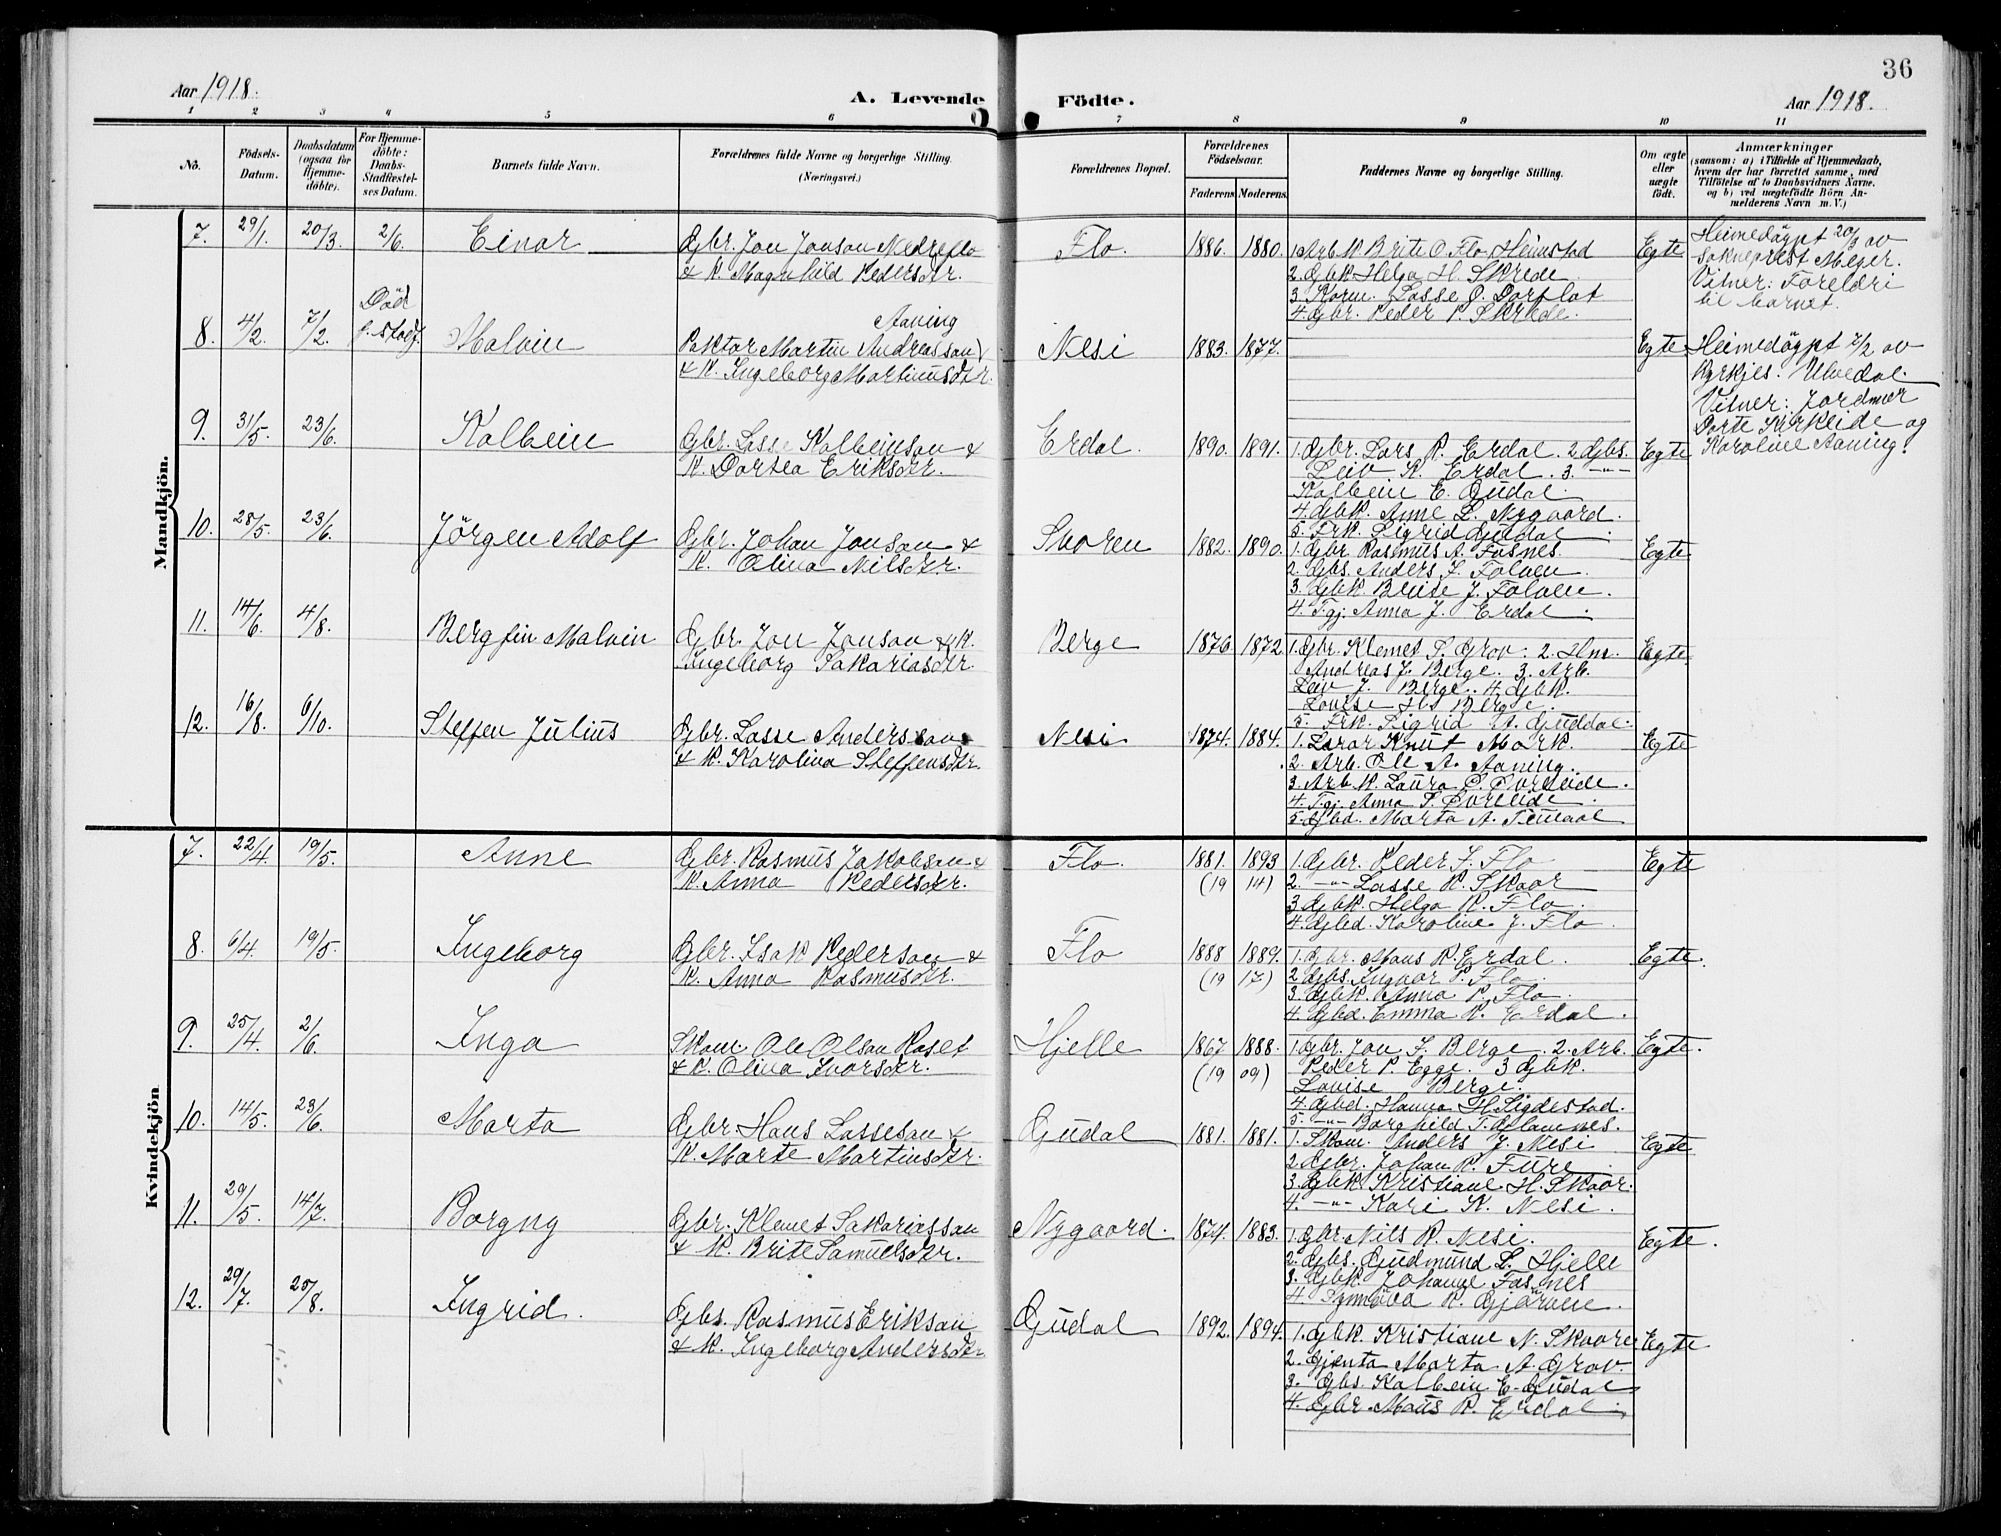 36
Aar 1918.
A. Levende Födte.
Aar 1918.
1 2 3 4 5 6 7 8 9 10 11
No.
Födsels-Datum.
Daabsdatum (ogsaa for Hjemme-döbte).
For Hjemme-döbte: Daabs-Stadfæstel-ses Datum.
Barnets fulde Navn.
Forældrenes fulde Navne og borgerlige Stilling.
(Næringsvei.)
Forældrenes Bopæl.
Forældrenes Födselsaar.
Faderens Moderens.
Faddernes Navne og borgerlige Stilling.
Om ægte eller uægte födt.
Anmærkninger
(saasom: a) i Tilfælde af Hjemmedaab, hvem der har forrettet samme, med Tilföielse af to Daabsvidners Navne, og b) ved uægtefödte Börn Anmelderens Navn m. V.)
Mandkjön.
7. 29/1. 20/3. 2/6. Einar
Gbr. Jon Jonson Nedreflo
& K. Magnhild Pedersdtr.
Flo. 1886. 1880.
1. Arb.K. Brite O. Flo Heimstad
2. Gbk. Helga H. Skrede
3. Korm. Lasse O. Dorflot
4. Gbr. Peder P. Skrede.
Egte
Heimedöypt 20/3 av
sokneprest Meyer.
Vitner: Foreldri
til barnet.
8. 4/2. 7/2. Död f. stadf. Malvin
Aaning
Martin Andreasson
& K. Ingeborg Martinusdtr.
Nesi 1883. 1877.
Egte
Heimedöypt 7/2 av
kyrkjes. Ulvedal.
Vitner: Jordmor
Dorte Kirkeide og
Karoline Aaning.
9. 31/5. 23/6. Kolbein
Gbr. Lasse Kolbeinson &
K. Dortea Eriksdtr.
Erdal. 1890. 1891.
1. Gbr. Lars R. Erdal. 2. Gbs.
Leiv K. Erdal. 3. -"-
Kolbein E. Gudal.
4. Gbk. Anne L. Nygaard.
5. Frk. Sigrid Guddal
Egte
10. 28/5. 23/6. Jörgen Adolf
Gbr. Johan Jonson &
K. Olina Nilsdtr.
Storen 1882. 1890.
1. Gbr. Rasmus A. Fosnes.
2. Gbs. Anders J. Folven.
3. Gbk. Brite J. Folven.
4. Tgj. Anna J. Erdal.
Egte
11. 14/6. 4/8. Bergfin Malvin
Gbr. Jon Jonson & K.
Ingeborg Sakariasdtr.
Berge 1876. 1872
1. Gbr. Klemet S. Grov. 2. Hm.
Andreas J. Berge. 3. Arb.
Leiv J. Berge. 4. Gbk.
Lovise Berge.
5. Frk. Sigrid A. Guddal.
Egte
12. 16/8. 6/10. Steffen Julius
Gbr. Lasse Andersson
& K. Karolina Steffensdtr.
Nesi 1874. 1884.
1. Lærar Knut Mork.
2. Arb. Ole A. Aaning.
3. Arb.K. Laura S. Oreleide.
4. Tgj. Anna S. Oreleide.
5. Gbd. Marta A. Temaal
Egte
Kvindekjön
7. 22/4. 19/5. Anne
Gbr. Rasmus Jakobson &
K. Anna Pedersdtr.
Flo. 1881. 1893
(19 14)
1. Gbr. Peder J. Flo
2. -"- Lasse R. Skaar
3. Gbk. Helga K. Flo.
4. Gbd. Karoline J. Flo.
Egte
8. 6/4. 19/5. Ingeborg
Gbr. Isak Pederson &
K. Anna Rasmusdtr.
Flo 1888 1889.
(19 17)
1. Gbr. Mons R. Erdal.
2. Gbs. Ingvar P. Flo
3. Gbk. Anna P. Flo.
4. Gbd. Emma R. Erdal.
Egte.
9. 25/4. 2/6. Inga
Skom. Ole Olson Raset
& K. Olina Ivarsdtr.
Hjelle 1867 1888.
(19 09)
1. Gbr. Jon J. Berge. 2. Arb.
Peder P. Egge. 3 Gbk.
Lovise Berge.
4. Gbd. Hanna H. Sigdestad.
5. -"- Borghild T. Glomnes.
Egte.
10. 14/5. 23/6. Marta
Gbr. Hans Lasseson &
K. Marte Martinsdtr.
Gudal 1881. 1881.
1. Skom. Anders J. Nesi
2. Gbr. Johan R. Fure
3. Gbk. Kristiane H. Skaar.
4. -"- Kari K. Nesi.
Egte
11. 29/5. 14/7. Borgny
Gbr. Klemet Sakariasson
& K. Brite Samuelsdtr.
Nygaard. 1874. 1883.
1. Gbr. Nils R. Nesi.
2. Gbs. Gudmund L. Hjelle
3. Gbk. Johanne Fosnes
4. Synnöva R. Gjörven.
Egte.
12. 29/7. 25/8. Ingrid.
Gbs. Rasmus Erikson
& K. Ingeborg Andersdtr
Gudal 1892. 1894.
1. Gbk. Kristiane N. Skaare
2. Gjenta Marta A. Grov.
3. Gbs. Kolbein E. Gudal
4. Gbr. Mons R. Erdal.
Egte